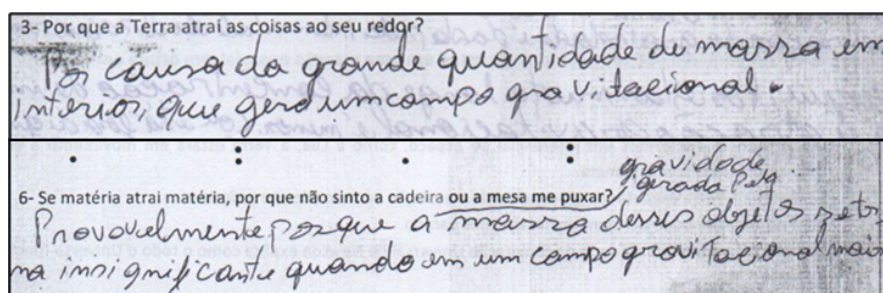 3- Por que a Terra atrai as coisas ao seu redor?
Por causa da grande quantidade de massa em
interior, que gera um campo gravitacional.
6- Se matéria atrai matéria, por que não sinto a cadeira ou a mesa me puxar?
gravidade
gerada pela
Provavelmente porque a massa desses objetos se tor
na insignificante quando em um campo gravitacional maio